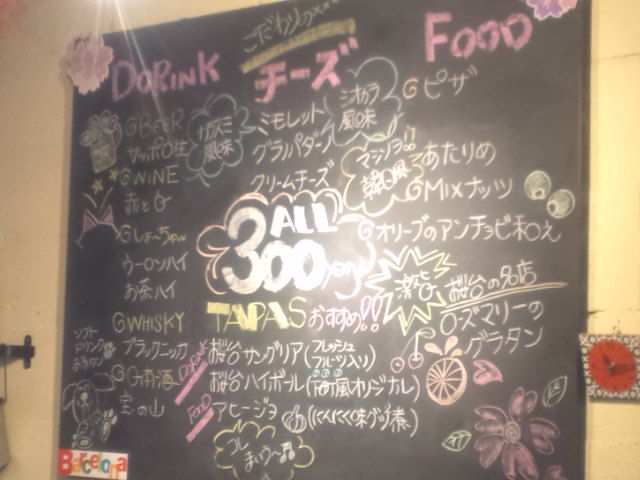 こだわりの×××
DORINK
チーズ
FOOD
GBEER
サッポロ生
GWINE
赤と白
Gしょ〜ちゅw
ウーロンハイ
お茶ハイ
GWHISKY
ブラックニッカ
G日本酒
宝の山
ソフト
ドリンクも
あるワン
カラスミ
風味
ミモレット
グラナパダーノ
クリームチーズ
シオカラ
風味
Gピザ
マッシブ!?
韓国風
あたりめ
GMIXナッツ
Gオリーブのアンチョビ和え
ALL
300yen
TAPASおすすめ!!
桜台の名店
ローズマリーの
グラタン
DORINK
桜台サングリア(フレッシュフルーツ入り)
桜台ハイボール(町風オリジナル)
FOOD
アヒージョ(にんにく味グツグツ煮)
コレ
まいう〜♪
Barcelona